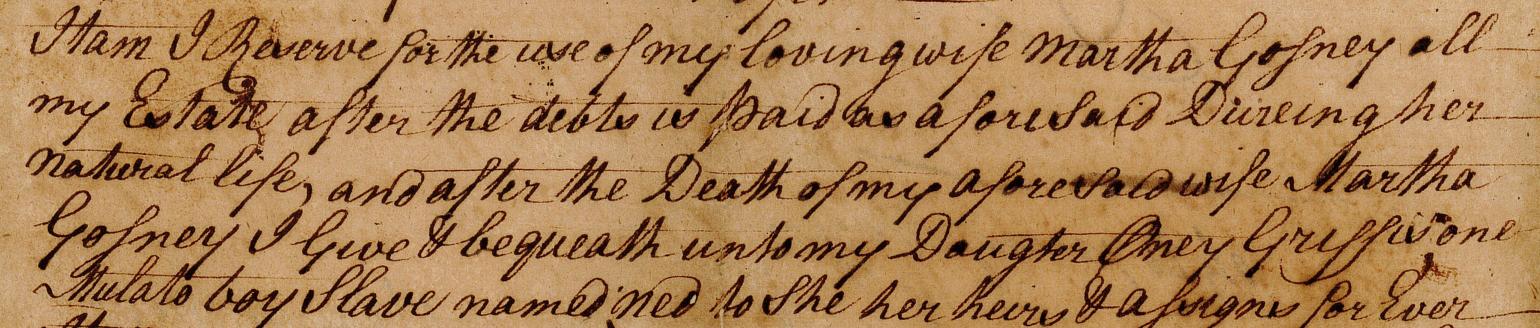 Itam I Reserve for the use of my loving wife Martha Gosney all
my Estate after the debts is Paid as afore Said Dureing her
natural life, and after the Death of my afore Said wife Martha
Gosney I Give & bequeath unto my Daughter Oney Griffis one
Mulato boy Slave named Ned to She her heirs & assigns for Ever